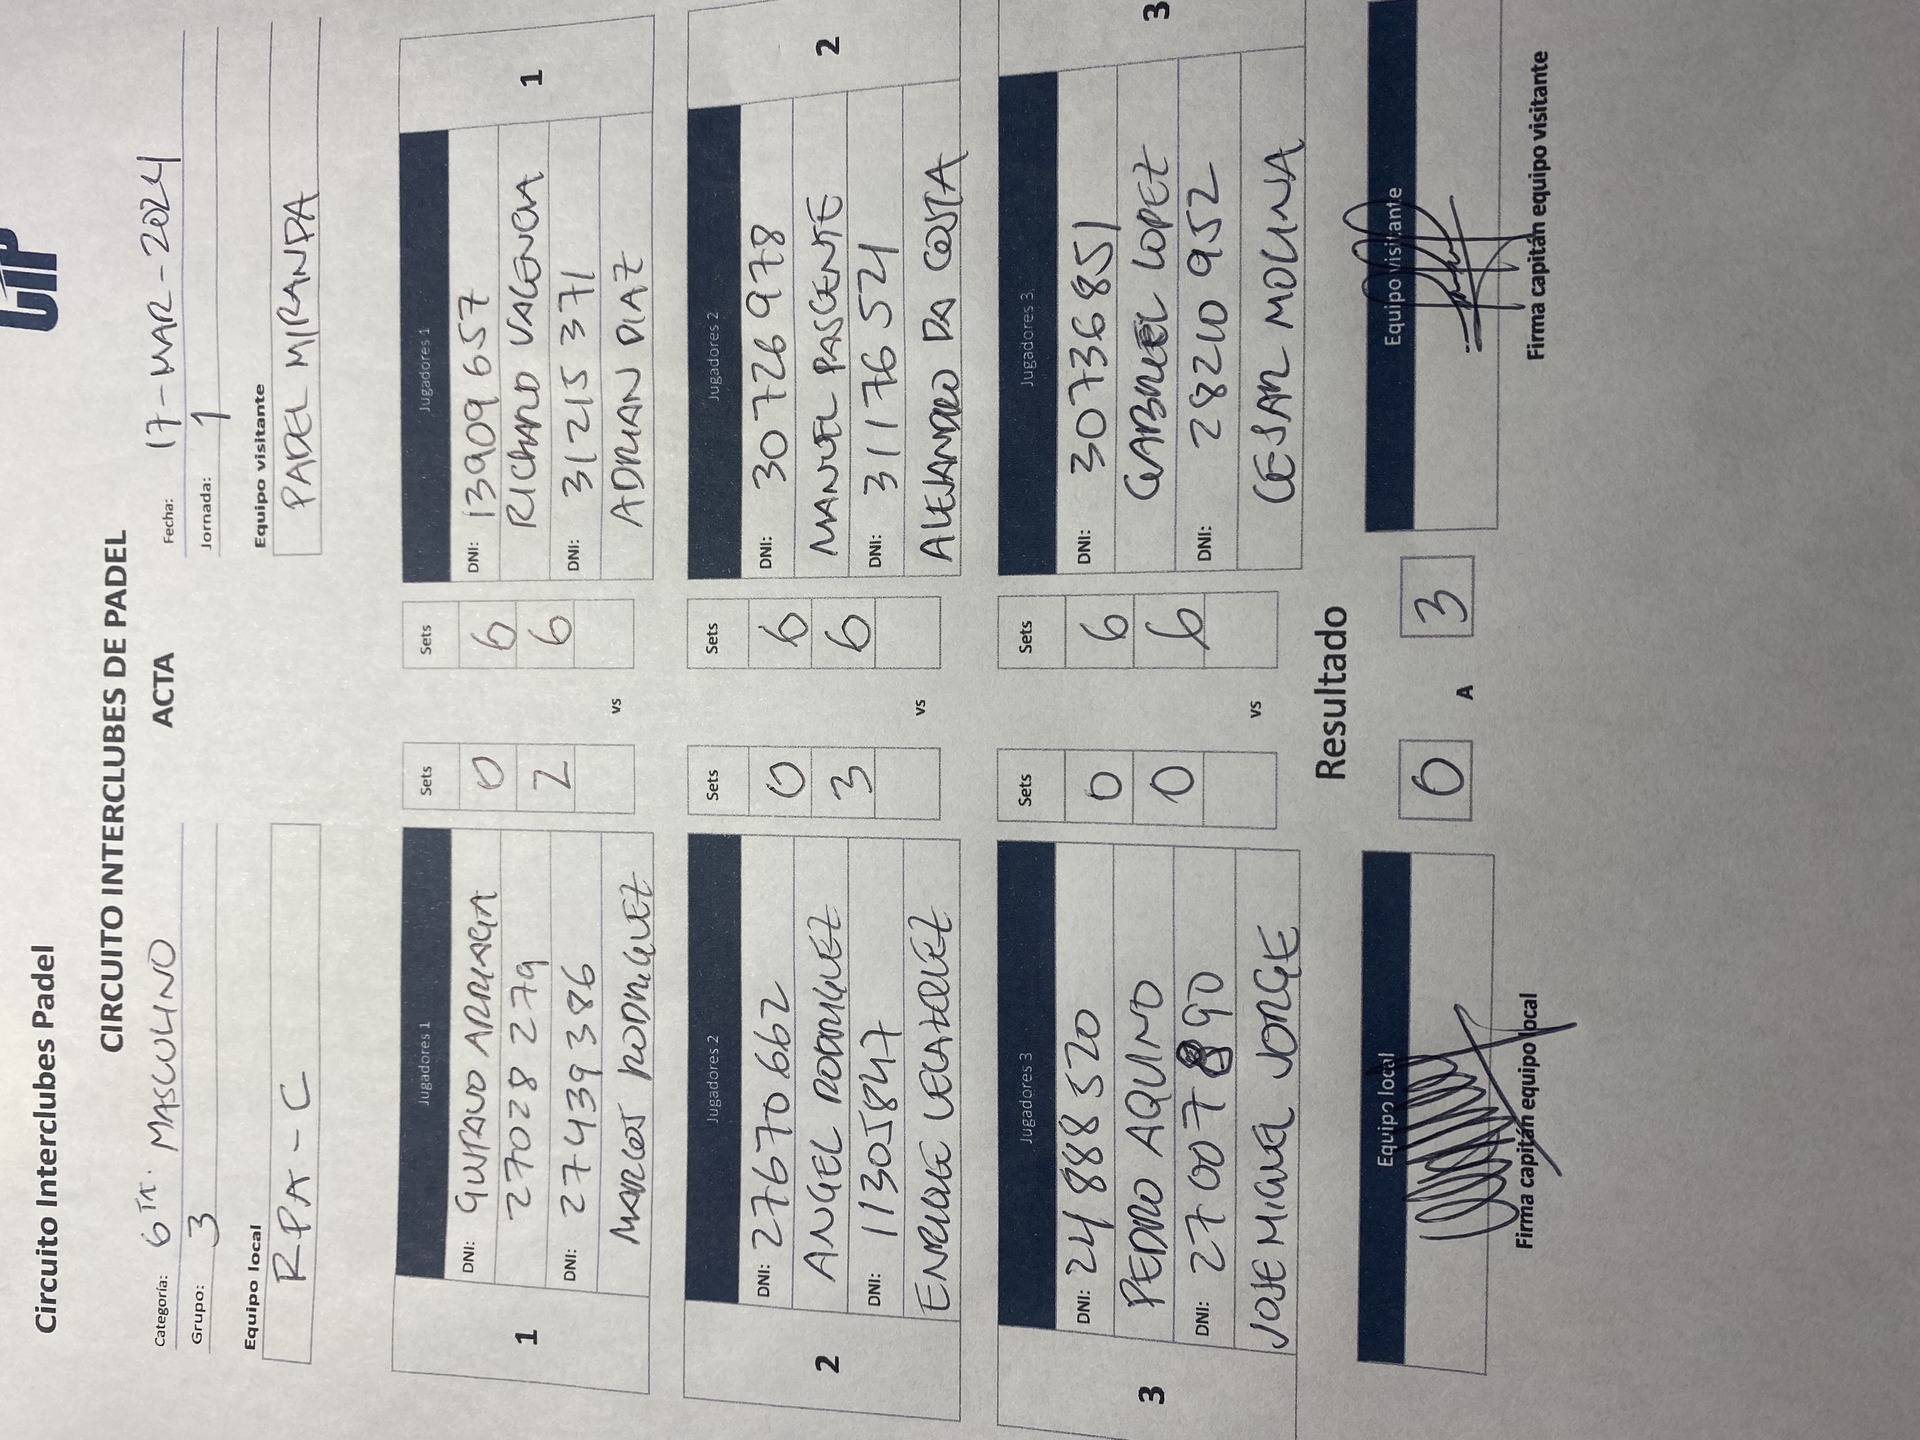 CIP
Circuito Interclubes Padel
CIRCUITO INTERCLUBES DE PADEL
ACTA
Categoría: 6TA. MASCULINO
Fecha: 17-MAR-2024
Grupo: 3
Jornada: 1
Equipo local
Equipo visitante
RPA-C
PADEL MIRANDA
1
Jugadores 1
Sets
Sets
Jugadores 1
1
DNI: ARRIAGA
0
6
DNI: 13909657
27028279
2
6
RICHARD VALENCIA
DNI: 27439386
DNI: 31215371
MARCOS RODRIGUEZ
vs
ADRIAN DIAZ
2
Jugadores 2
Sets
Sets
Jugadores 2
2
DNI: 27670662
0
6
DNI: 30726978
ANGEL RODRIGUEZ
3
6
MANUEL PASCENTE
DNI: 11305847
DNI: 31176521
ENRIQUE
vs
ALEJANDRO DA COSTA
3
Jugadores 3
Sets
Sets
Jugadores 3.
3
DNI: 24888520
0
6
DNI: 30736851
PEDRO AQUINO
0
6
GABRIEL LOPEZ
DNI: 27007890
DNI: 28210952
JOSE MIGUEL JORGE
vs
CESAR MOLINA
Resultado
Equipo local
0 A 3
Equipo visitante
Firma capitán equipo local
Firma capitán equipo visitante